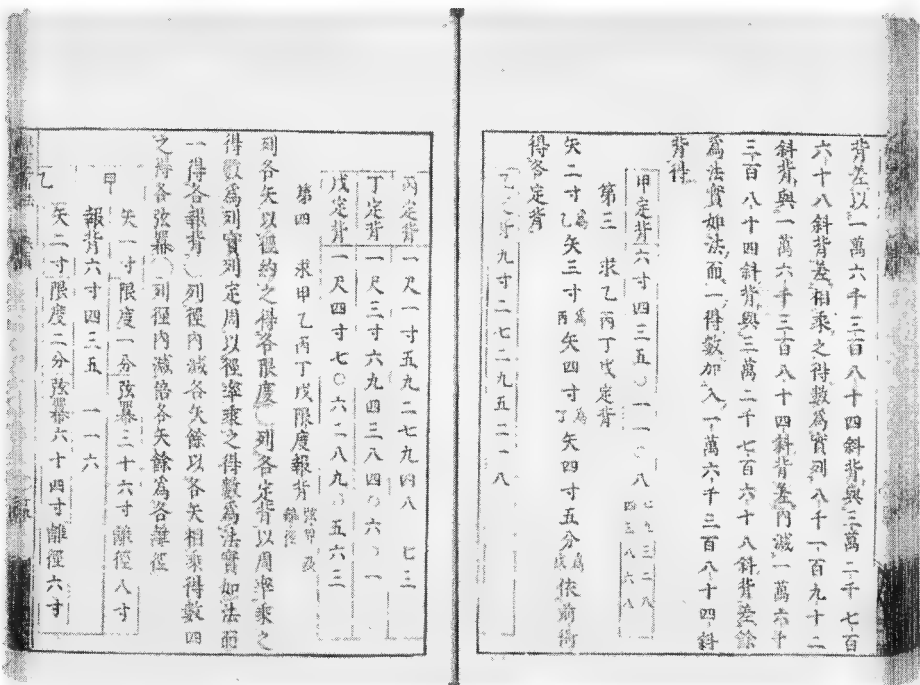 背差以一萬六千三百八十四斜背與三萬二千七百
六十八斜背差相乘之得數爲實列八千一百九十二
斜背與一萬六千三百八十四斜背差內減一萬六千
三百八十四斜背與三萬二千七百六十八斜背差餘
爲法實如法而一得數加入一萬六千三百八十四斜
背得
甲定背六寸四三五〇一一〇八
第三 求乙丙丁戊定背
矢二寸爲乙矢三寸爲丙矢四寸爲丁矢四寸五分爲戊依前術
得各定背
乙定背九寸二七二九五二一八
丙定背一尺一寸五九二七九四八 七三
丁定背一尺三寸六九四三八四 六 一
戊定背一尺四寸七〇六二八九 五六三
第四 求甲乙丙丁戊限度報背
列各矢以徑約之得各限度 列各定背以周率乘之
得數爲列實列定周以徑率乘之得數爲法實如法而
一得各報背 列徑內減各矢餘以各矢相乘得數四
之得各弦冪 列徑內減倍各矢餘爲各離徑
甲
矢一寸限度一分弦冪三十六寸離徑八寸
報背六寸四三五 一一六
乙
矢二寸限度二分弦冪六十四寸離徑六寸